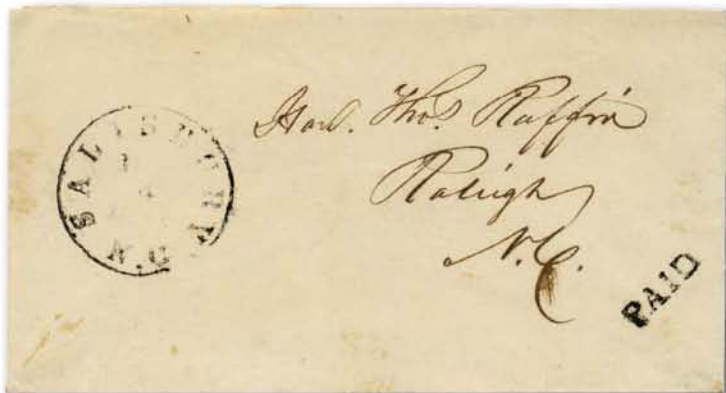 SALISBURY
N.C.
Hon. Thos. Ruffin
Raleigh
N.C.
PAID